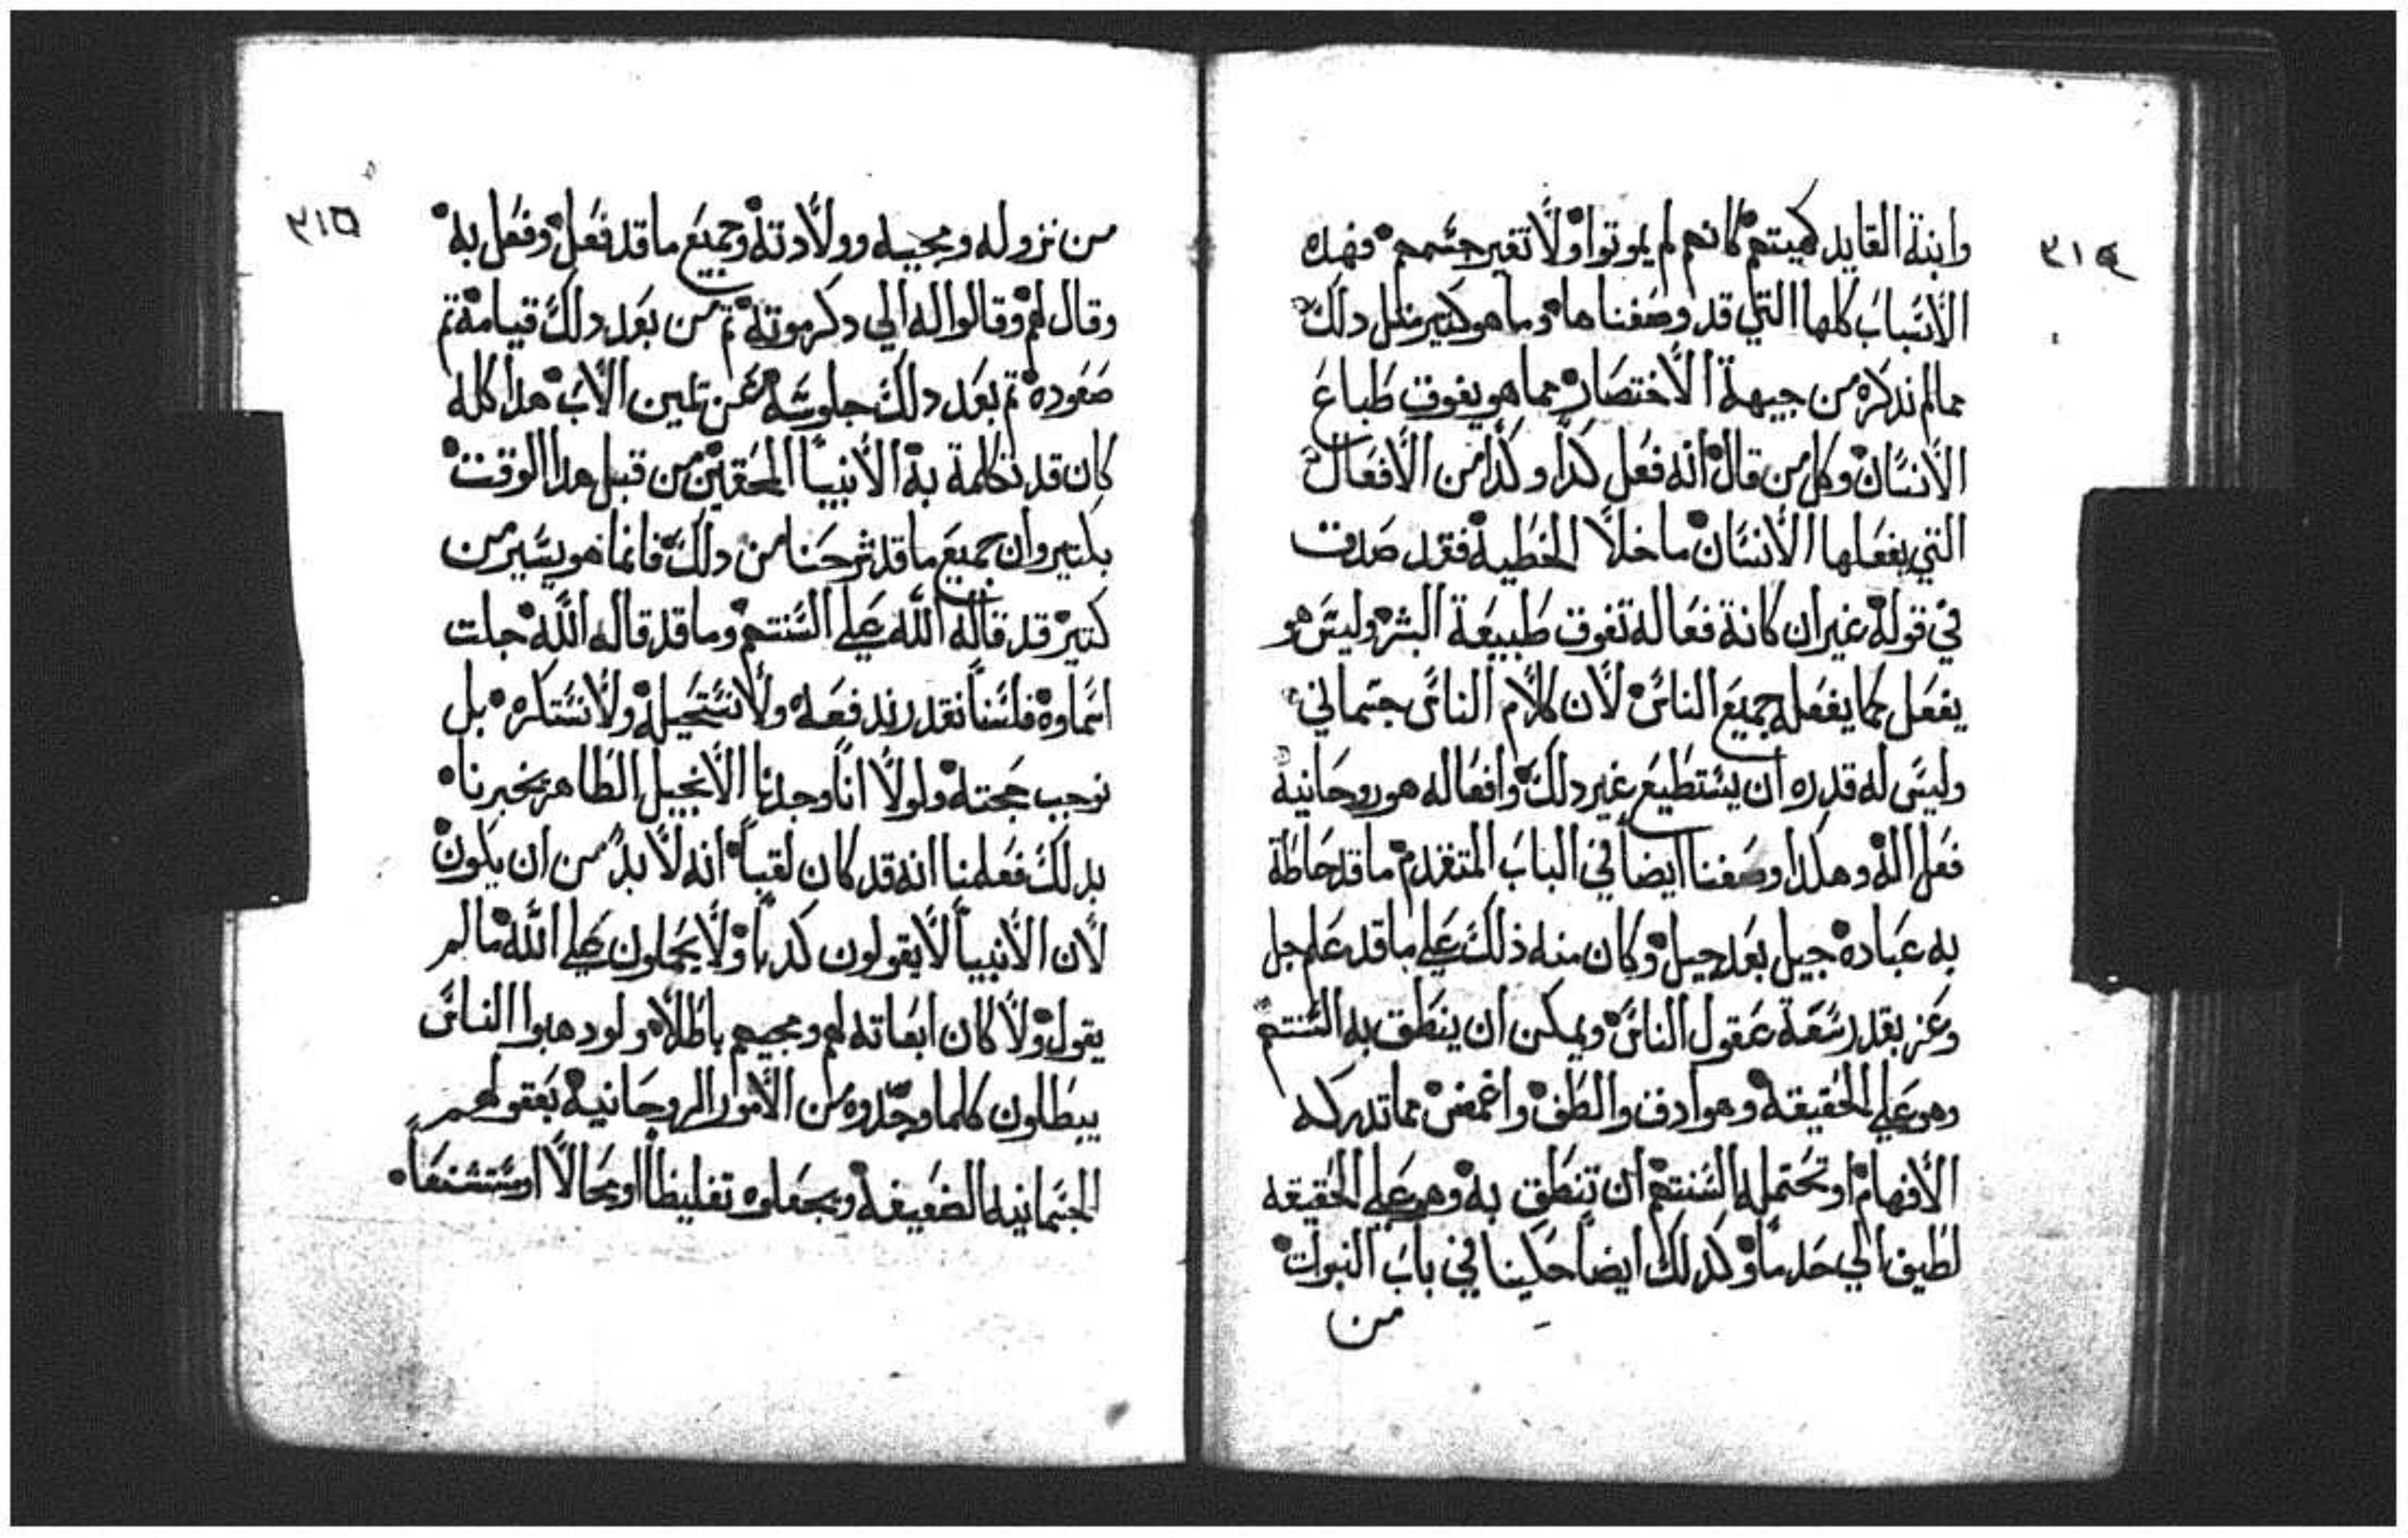 ٣١٤
وابنة القايد كهيتهم كانهم لم يموتوا ولا تغير جسمهم فهده
الانسباب كلها التي قد وصفناها وما هو كتير مثل دلك
مما لم ندكره من جيهة الاختصار مما هو يفوق طباع
الانسان وكل من قال انه فعل كدا وكدا من الافعال
التي يفعلها الانسان ما خلا الخطية فقد صدق
في قوله غير ان كانة فعاله تفوق طبيعة البشر وليس هو
يفعل كما يفعله جميع الناس لان كلام الناس جسماني
وليس له قدره ان يستطيع غير دلك وافعاله هو روحانية
فعل اله وهكدا وصفنا ايضا في الباب المتقدم ما قد حاطة
به عباده جيل بعد جيل وكان منه ذلك علي ما قد علم جل
وعز بقدر سعة عقول الناس ويمكن ان ينطق به السنتهم
وهو علي الحقيقة وهو ادق والطف واغمض مما تدركه
الافهام او تحتمله السنتهم ان تنطق به وهو علي الحقيقه
لطيف الي حد ما وكدلك ايضا حكينا في باب النبوات
من
٣١٥
من نزوله ومجييه وولادته وجميع ما قد فعل وفعل به
وقال لهم وقالوا له الي دكر موته تم من بعد دلك قيامة تم
صعوده تم بعد دلك جلوسه عن يمين الاب هدا كله
كان قد تكلمة به الانبيا المحقين من قبل هدا الوقت
بكتير وان جميع ما قد شرحنا من دلك فانما هو يسير من
كتير قد قاله الله علي السنتهم وما قد قاله الله جلت
اسماوه فلسنا نقدر ندفعه ولا نستحيله ولا نستكره بل
نوجب حجته ولولا انا وجدنا الانجيل الطاهر يخبرنا
بدلك فعلمنا انه قد كان لقبا انه لا بد من ان يكون
لان الانبيا لا يقولون كدبا ولا يحملون علي الله ما لم
يقول ولا كان ابعاته لهم ومجيهم باطلا ولو دهبوا الناس
يبطلون كلما وجدوه من الامور الروحانية بعقولهم
الجسمانيه الضعيفة ويجعلوه تغليظا او محالا او مستشنعا